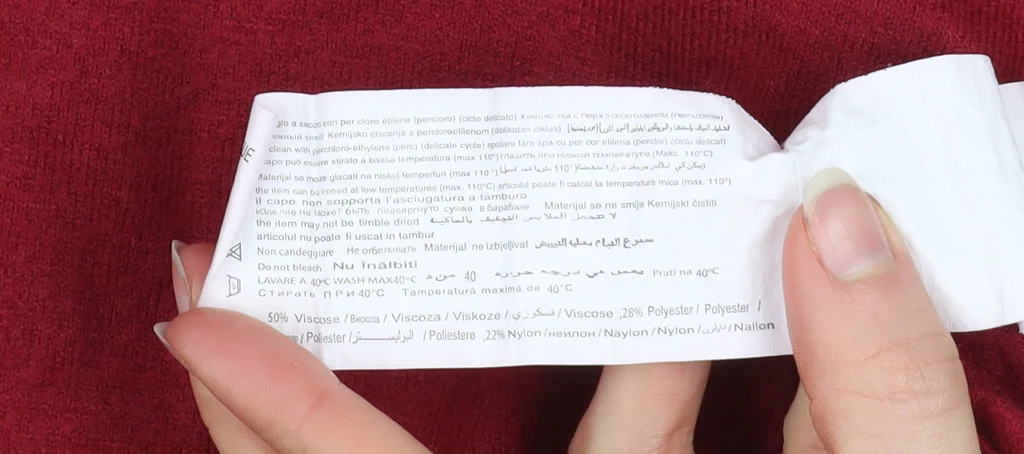 gio a secco con per cloro etilene (percloro) (ciclo delicato)
Kemijsko ciscenje s percloroetilenom (delikatan ciklus)
clean with perchloro-ethylene (perc) (delicate cycle) spalare fara apa cu per cor etilena (percior) (ciclu delicat)
capo può essere stirato a bassa temperatura (max 110°) гладить при низкой температуре (Макс. 110°C)
Materijal se moze glacati na niskoj temperturi (max 110°)
the item can be ironed at low temperatures (max. 110°C) articolul poate fi calcat la temperatura mica (max. 110°)
il capo non sopporta l'asciugatura a tamburo
не может быть подвернуто сушке в барабане Materijal se ne smije Kemijski čistiti
the item may not be timble dried
articolul nu poate fi uscat in tambur
Non candeggiare Не отбеливать Materijal ne izbjeljivat
Do not bleach Nu înălbiti
LAVARE A 40°C WASH MAX40°C 40 Prati na 40°C
Стирать ПРИ 40°C Tamperatură maximă de 40°C
50% Viscose / Вискоза / Viscoza / Viskoze / فسكوزي / Viscose ,28% Polyester / Polyester /
/ Poliester / البوليستر / Poliestere ,22% Nylon / нейлон / Naylon / Nylon / نايلون / Nailon